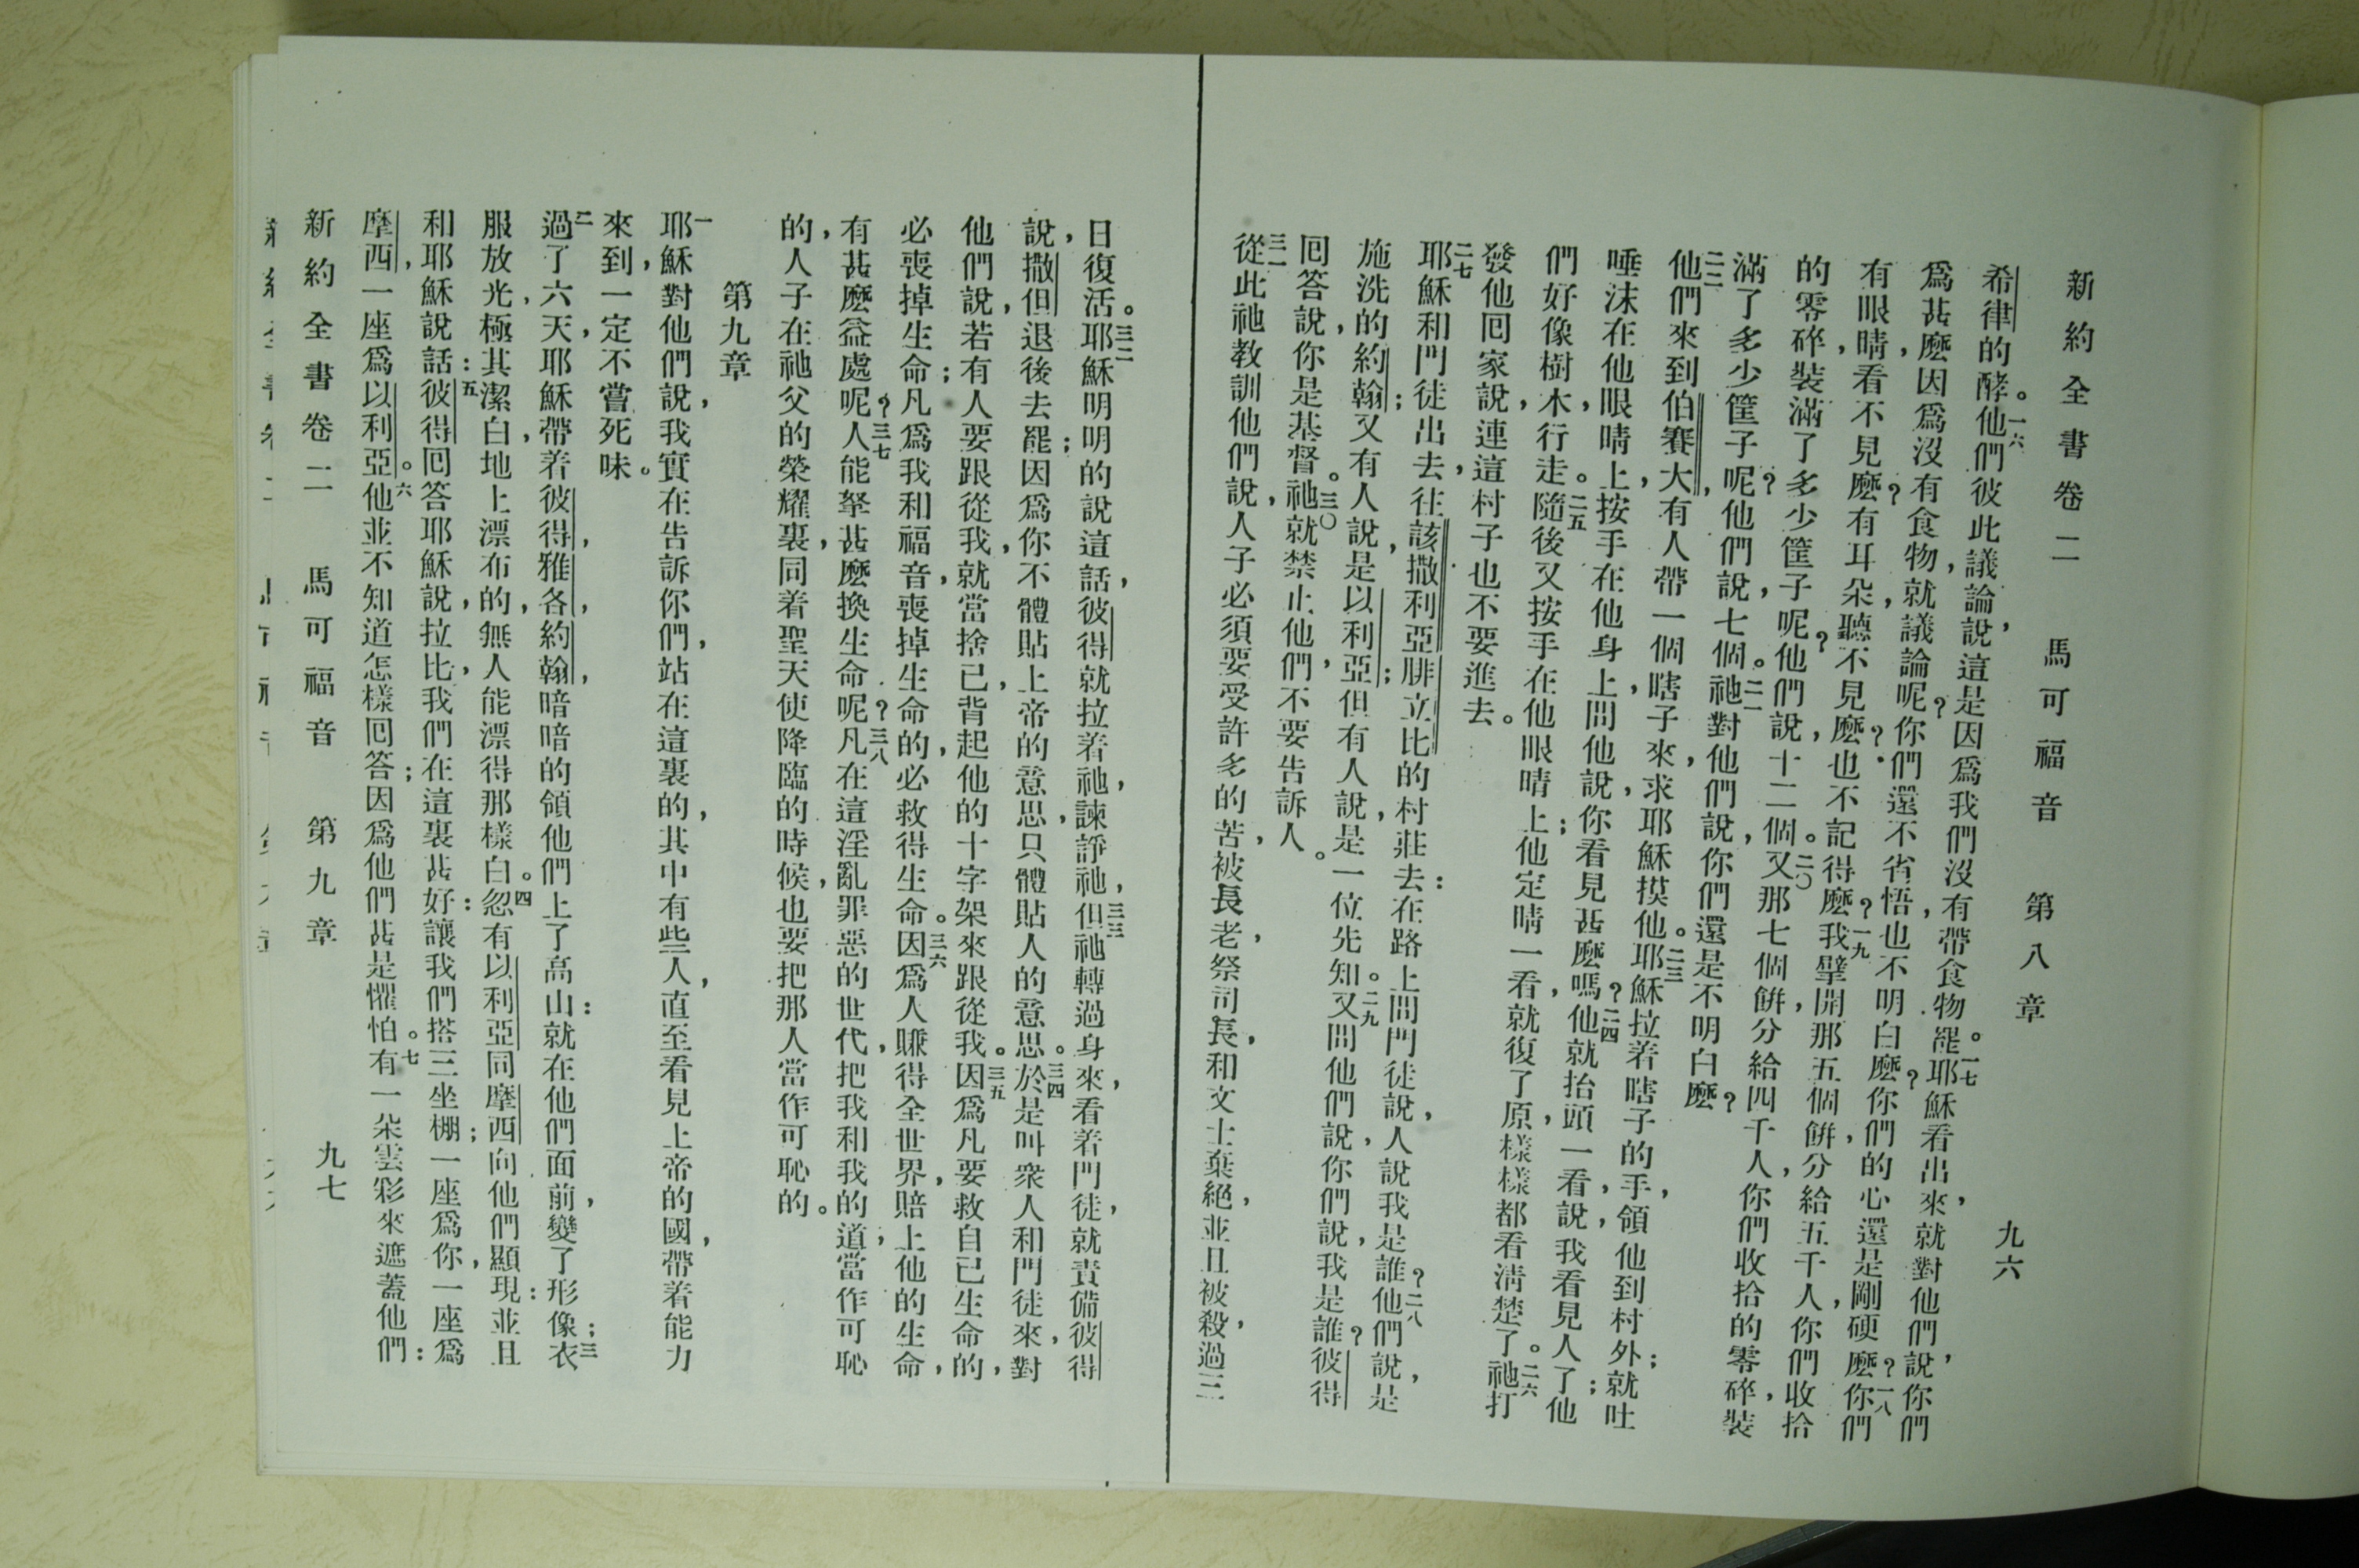 新約全書卷二　馬可福音　第八章　九六
希律的酵。一六他們彼此議論說，這是因爲我們沒有帶食物罷。一七耶穌看出來，就對他們說，你們
爲甚麽因爲沒有食物，就議論呢？你們還不省悟，也不明白麽？你們的心還是剛硬麽？一八你們
有眼睛，看不見麽？有耳朵，聽不見麽？也不記得麽？一九我擘開那五個餅，分給五千人，你們收拾
的零碎，裝滿了多少筐子呢？他們說，十二個。二〇又那七個餅，分給四千人，你們收拾的零碎，裝
滿了多少筐子呢？他們說，七個。二一祂對他們說，你們還是不明白麽？
二二他們來到伯賽大，有人帶一個瞎子來，求耶穌摸他。二三耶穌拉着瞎子的手，領他到村外；就吐
唾沫在他眼睛上，按手在他身上，問他說，你看見甚麽嗎？二四他就抬頭一看，說，我看見人了；他
們好像樹木，行走。二五隨後又按手在他眼睛上；他定睛一看，就復了原，樣樣都看清楚了。二六祂打
發他囘家，說，連這村子也不要進去。
二七耶穌和門徒出去，往該撒利亞腓立比的村莊去：在路上問門徒說，人說我是誰？二八他們說，是
施洗的約翰；又有人說，是以利亞；但有人說，是一位先知。二九又問他們說，你們說，我是誰？彼得
囘答說，你是基督。三〇祂就禁止他們，不要告訴人。
三一從此祂教訓他們說，人子必須要受許多的苦，被長老，祭司長，和文士棄絕，並且被殺，過三
日復活。三二耶穌明明的說這話，彼得就拉着祂，諫諍祂，三三但祂轉過身來，看着門徒，就責備彼得
說，撒但退後去罷；因爲你不體貼上帝的意思，只體貼人的意思。三四於是叫衆人和門徒來，對
他們說，若有人要跟從我，就當捨己，背起他的十字架來跟從我。三五因爲凡要救自己生命的，
必喪掉生命；凡爲我和福音，喪掉生命的，必救得生命。三六因爲人賺得全世界，賠上他的生命，
有甚麽益處呢？三七人能拏甚麽換生命呢？三八凡在這淫亂罪惡的世代，把我和我的道；當作可恥
的，人子在祂父的榮耀裏，同着聖天使降臨的時候，也要把那人當作可恥的。
第九章
一耶穌對他們說，我實在告訴你們，站在這裏的，其中有些人，直至看見上帝的國，帶着能力
來到，一定不嘗死味。
二過了六天，耶穌帶着彼得，雅各，約翰，暗暗的領他們上了高山：就在他們面前，變了形像；三衣
服放光，極其潔白，地上漂布的，無人能漂得那樣白。四忽有以利亞同摩西向他們顯現：並且
和耶穌說話：五彼得囘答耶穌說，拉比，我們在這裏甚好：讓我們搭三坐棚；一座爲你，一座爲
摩西，一座爲以利亞。六他並不知道怎樣囘答；因爲他們甚是懼怕。七有一朵雲彩來遮蓋他們：
新約全書卷二　馬可福音　第九章　九七